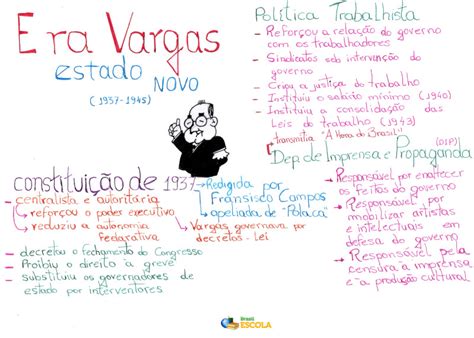 Era Vargas
estado NOVO
(1937-1945)
Política Trabalhista
- Reforçou a relação do governo
com os trabalhadores
- Sindicatos sob intervenção do
governo
- Criou a justiça do trabalho
- Instituiu o salário mínimo (1940)
- Instituiu a consolidação das
Leis do trabalho (1943)
transmitia "A Hora do Brasil"
(DIP)
Dep. de Imprensa e Propaganda
Responsável por enaltecer
os feitos do governo
Responsável por
mobilizar artistas
e intelectuais em
defesa do governo
Responsável pela
censura à imprensa
e à produção cultural
constituição de 1937
Redigida por
Fransisco Campos
apeliada de "Polaca"
- centralista e autoritária
reforçou o poder executivo
reduziu a autonomia
federativa
Vargas governava por
decretos-lei
- decretou o fechamento do Congresso
- Proibiu o direito à greve
- substituiu os governadores de
estado por interventores
Brasil
ESCOLA